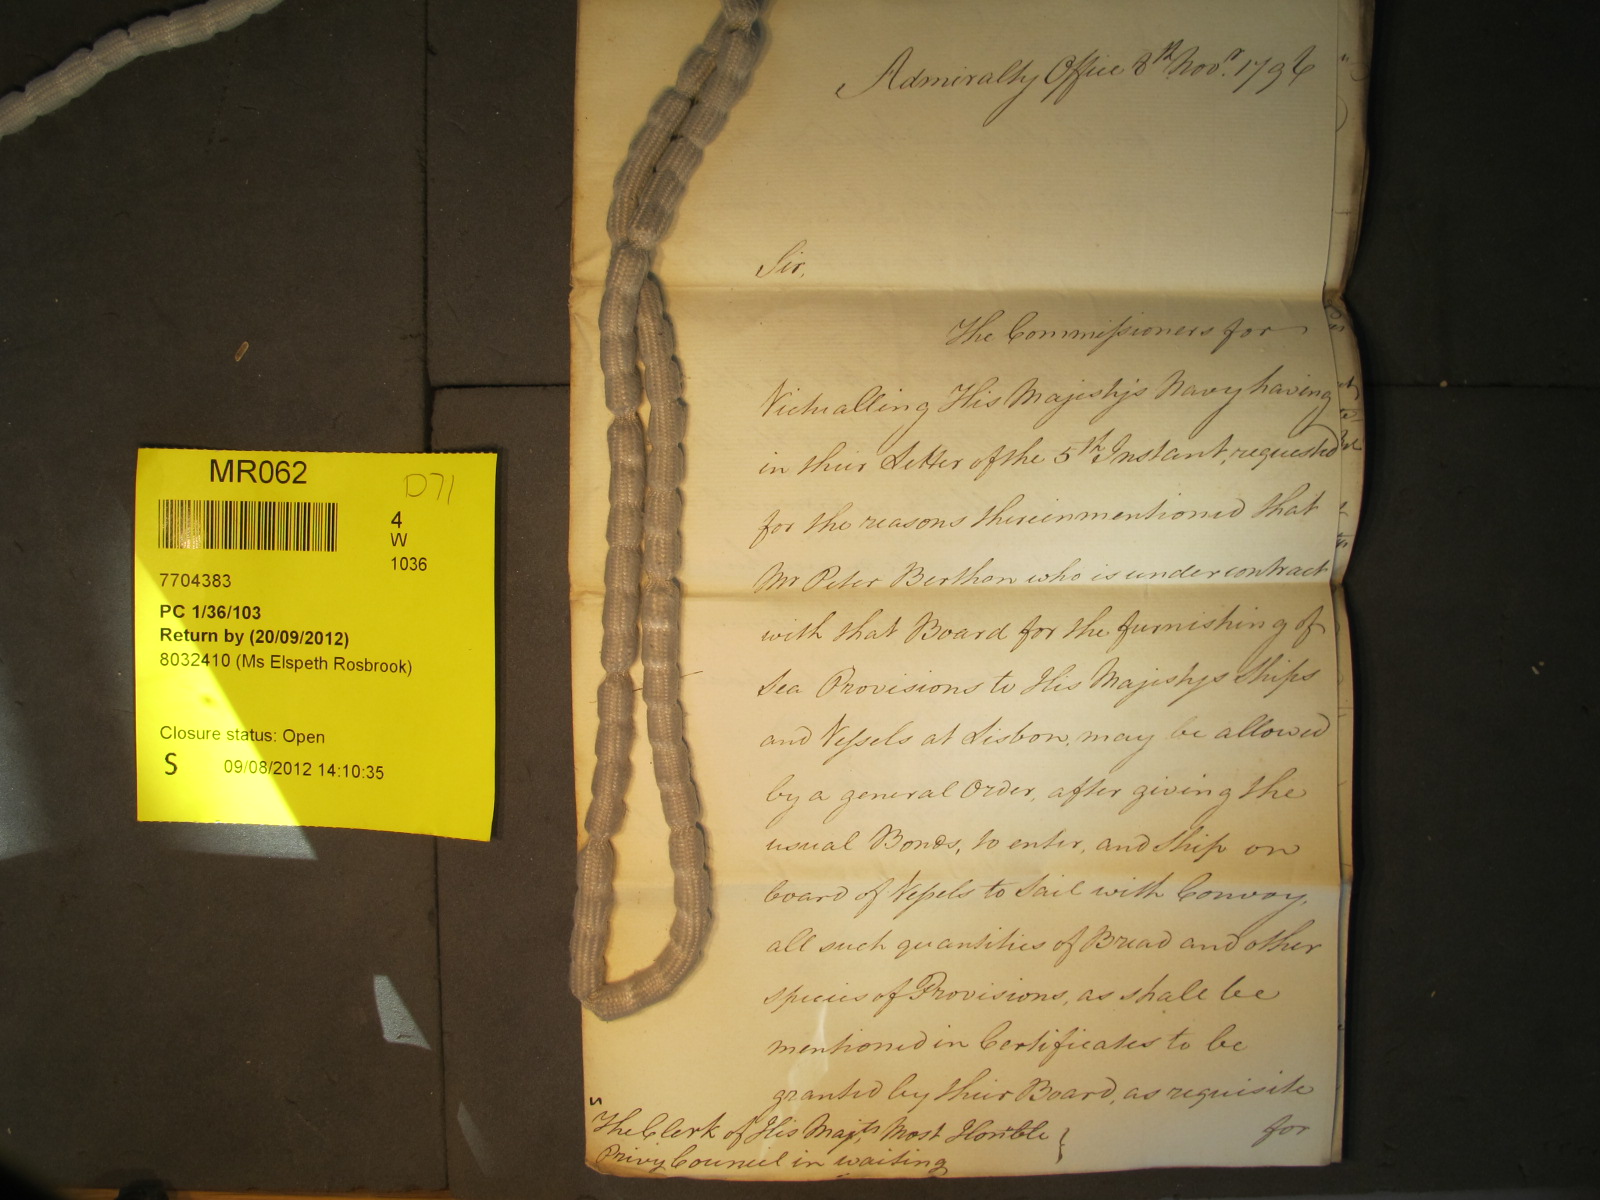 MR062
D71
4
W
1036
7704383
PC 1/36/103
Return by (20/09/2012)
8032410 (Ms Elspeth Rosbrook)
Closure status: Open
S 09/08/2012 14:10:35
Admiralty Office 8th Novr. 1796
Sir,
The Commissioners for
Victualling His Majestys Navy having
in their Letter of the 5th Instant, requested
for the reasons therein mentioned that
Mr Peter Berthon who is under contract
with that Board for the furnishing of
Sea Provisions to His Majestys Ships
and Vessels at Lisbon, may be allowed
by a general Order, after giving the
usual Bonds, to enter, and Ship on
board of Vessels to Sail with Convoy,
all such quantities of Bread and other
species of Provisions, as shall be
mentioned in Certificates to be
granted by their Board, as requisite
for
The Clerk of His Majts. Most Honble
Privy Council in waiting